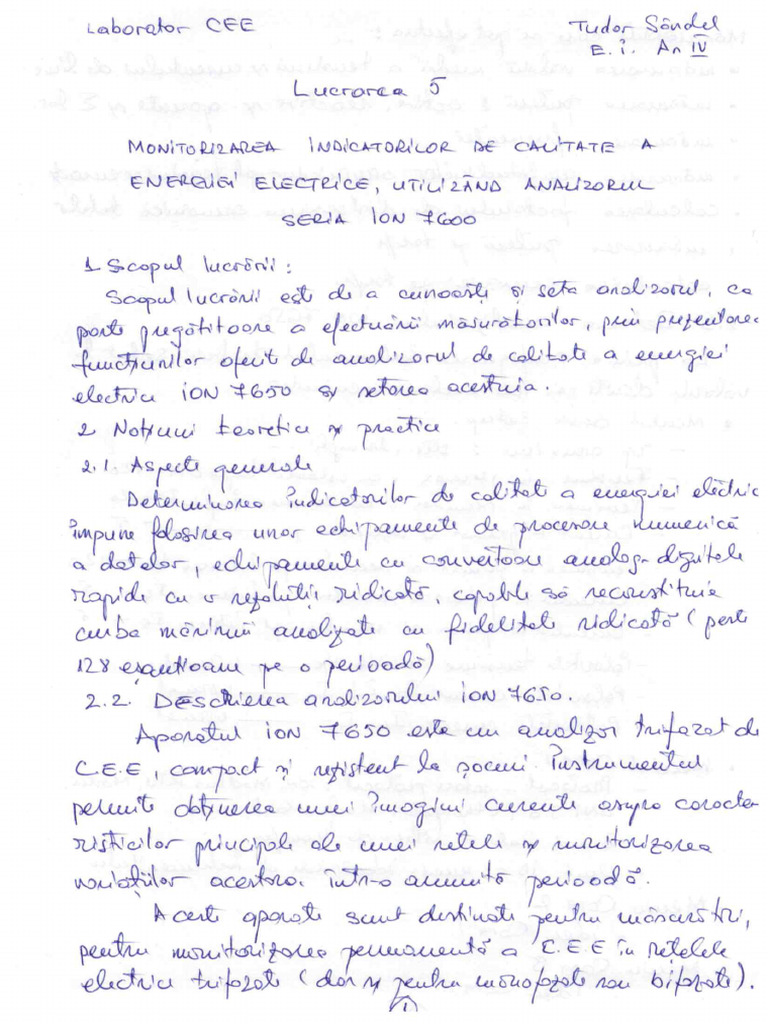 Laborator CEE
Tudor Săndel
E.i. An IV
Lucrarea 5
MONITORIZAREA INDICATORILOR DE CALITATE A
ENERGIEI ELECTRICE, UTILIZÂND ANALIZORUL
SERIA ION 7600
1. Scopul lucrării:
Scopul lucrării este de a cunoaște și seta analizorul, ca
parte pregătitoare a efectuării măsurătorilor, prin prezentarea
funcțiunilor oferite de analizorul de calitate a energiei
electrice ION 7650 și setarea acestuia.
2. Noțiuni teoretice și practice
2.1. Aspecte generale
Determinarea indicatorilor de calitate a energiei electrice
impune folosirea unor echipamente de procesare numerică
a datelor, echipamente cu convertoare analog-digitale
rapide cu o rezoluție ridicată, capabile să reconstituie
curba mărimii analizate cu fidelitate ridicată (peste
128 eșantioane pe o perioadă)
2.2. Descrierea analizorului ION 7650.
Aparatul ION 7650 este un analizor trifazat de
C.E.E, compact și rezistent la șocuri. Instrumentul
permite obținerea unei imagini curente asupra caracte
risticilor principale ale unei rețele și monitorizarea
variațiilor acestora într-o anumită perioadă.
Aceste aparate sunt destinate pentru măsurători,
pentru monitorizarea permanentă a C.E.E în rețelele
electrice trifazate (dar și pentru monofazate sau bifazate).
1